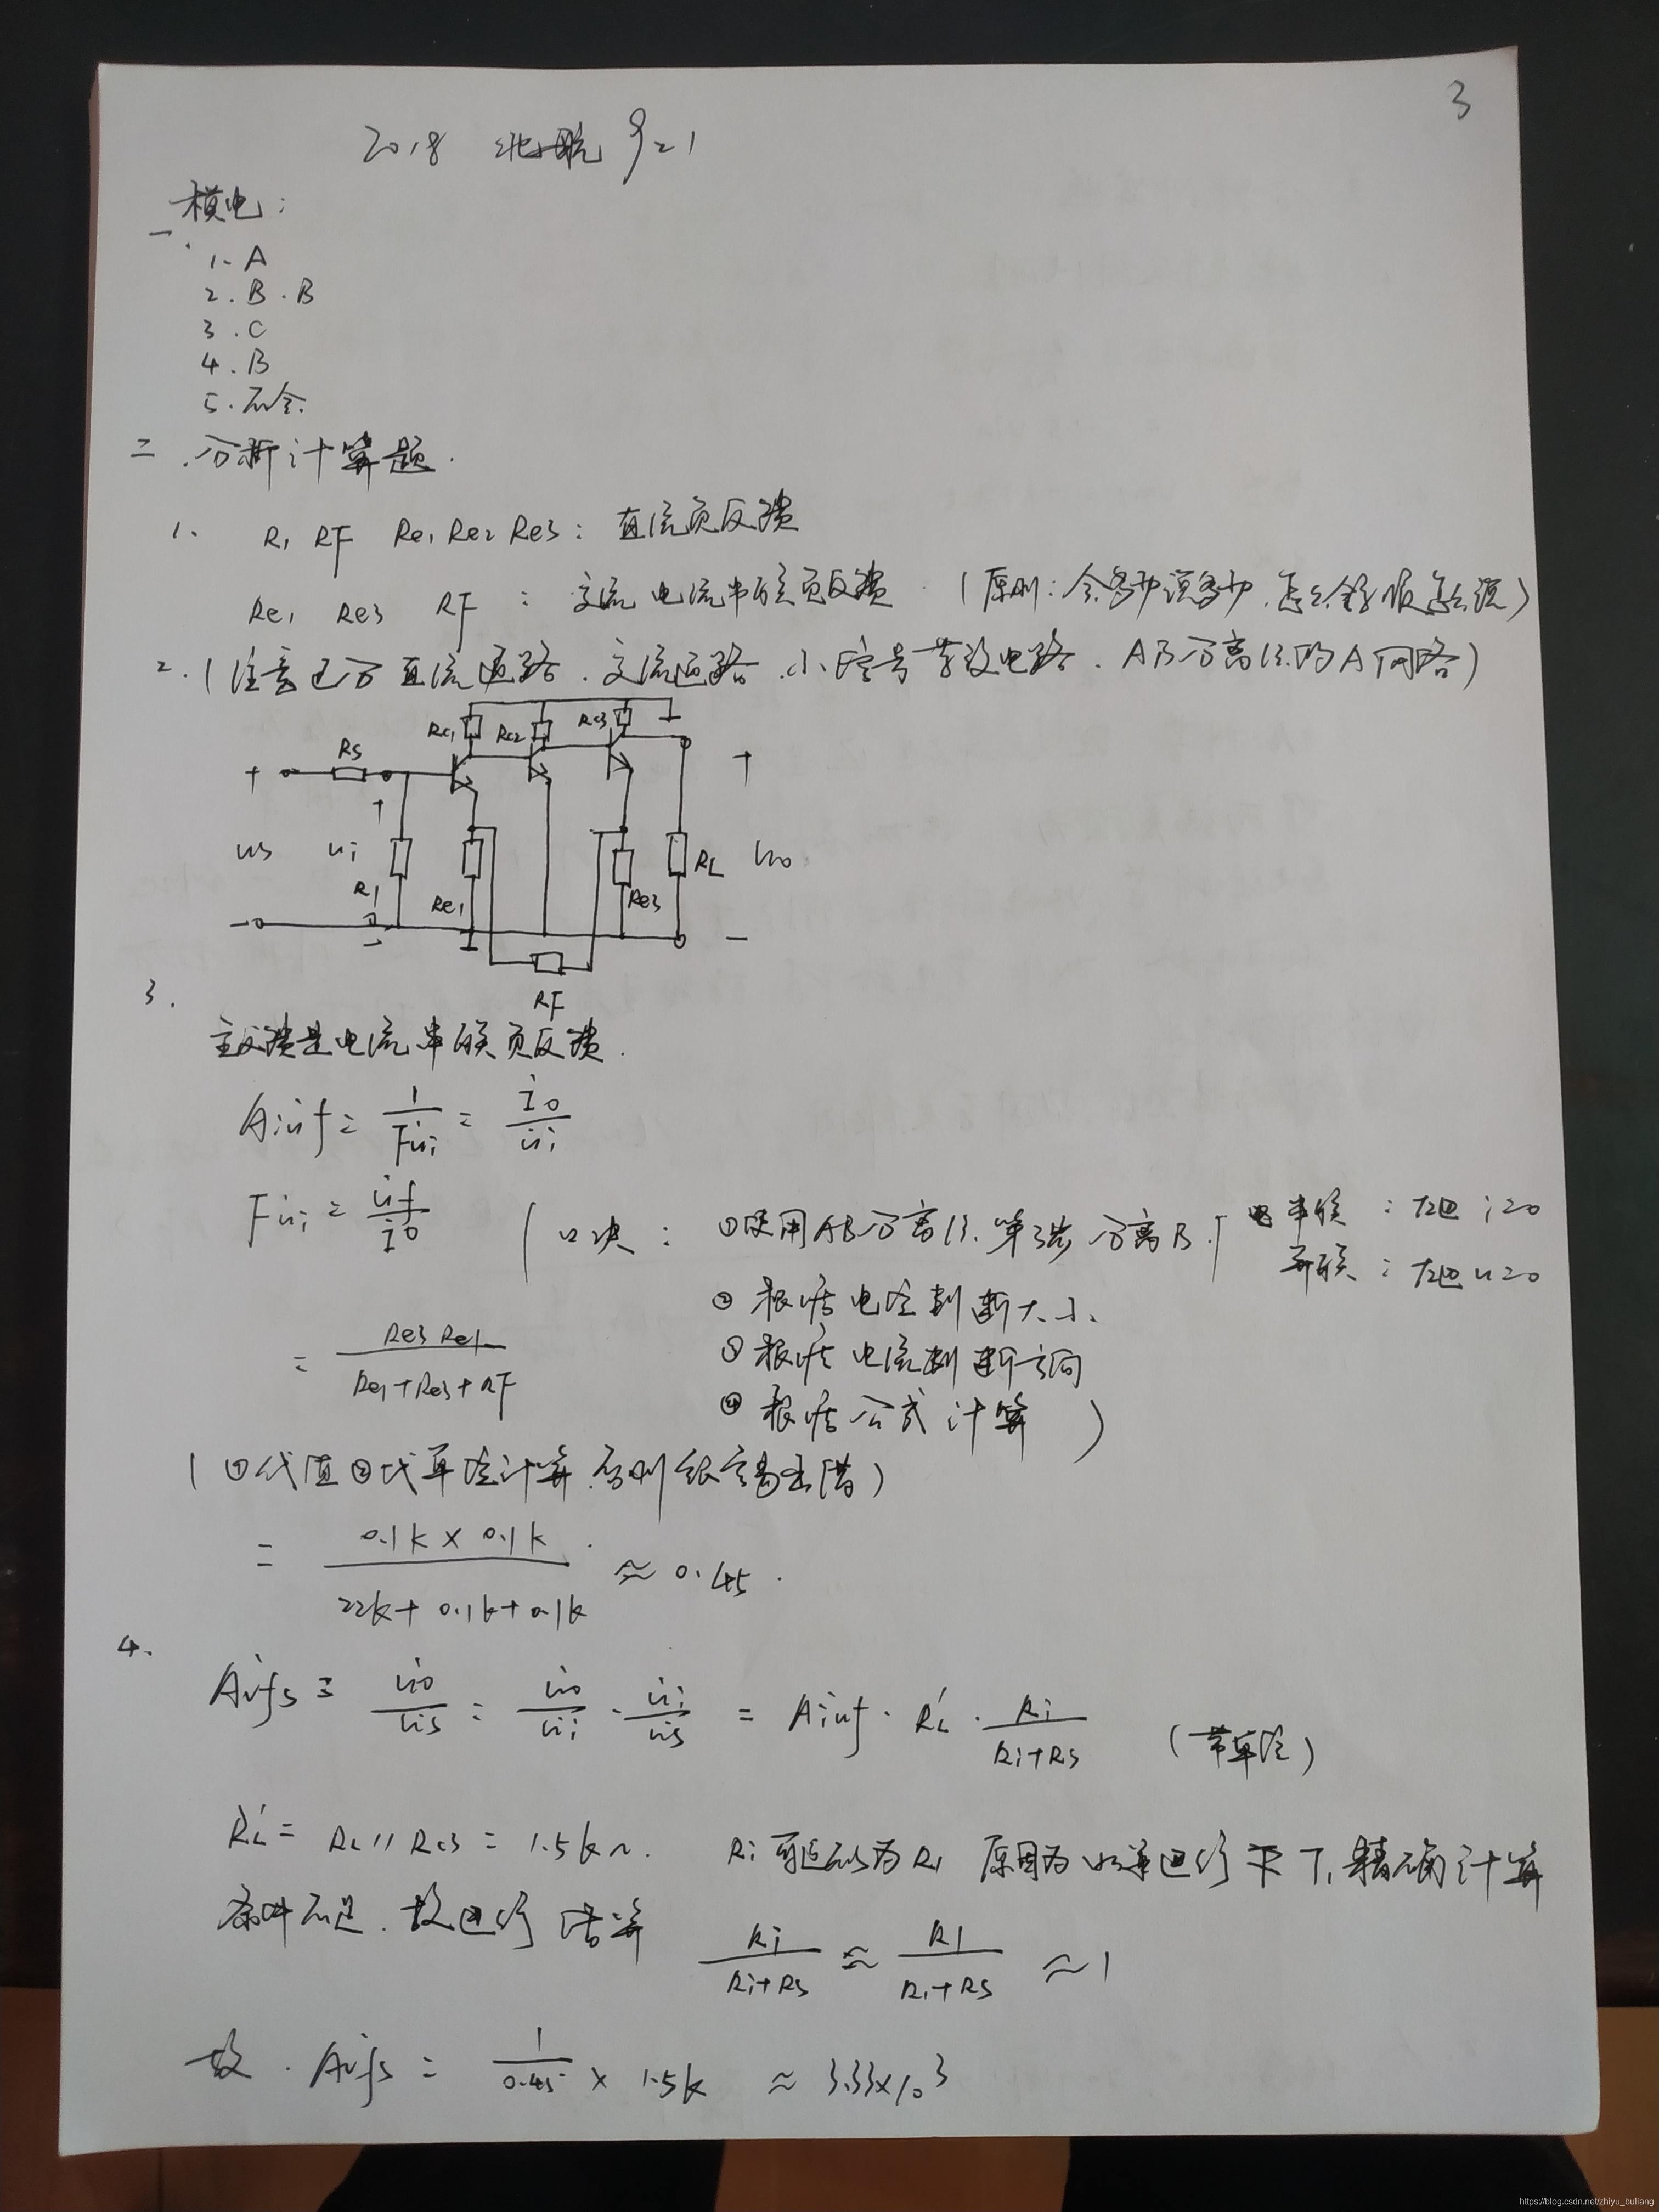 3
2018 北航 921
模电:
一.
1. A
2. B. B
3. C
4. B
5. 不会.
二.分析计算题.
1. R1 RF Re1 Re2 Re3: 直流负反馈
Re1 Re3 RF : 交流电流串联负反馈. (原则: 会多少说多少.怎么顺怎么说)
2. (注意区分直流通路.交流通路.小信号等效电路. AB分离法的A网络)
Rs
Rc1 Rc2 Rc3
+ +
+
us ui R1 Re1 Re3 RL uo
- - -
RF
3.
主反馈是电流串联负反馈.
Aiuf = 1/Fui = io/ui
Fui = uf/io
(口决: ①使用AB分离法.第3步分离B.
串联: 左边i=0
并联: 左边u=0
②根据电阻判断大小.
③根据电流判断方向
④根据公式计算)
= Re3 Re1 / Re1+Re3+RF
(①代值②代单位计算.否则很容易出错)
= 0.1k × 0.1k / 22k+0.1k+0.1k ≈ 0.45.
4.
Avfs = uo/us = uo/ui · ui/us = Aiuf · RL' · Ri/Ri+Rs (带单位)
RL' = RL//Rc3 = 1.5kΩ. Ri 可近似为R1 原因为 精确计算
条件不足.故进行估算
Ri/Ri+Rs ≈ R1/R1+Rs ≈ 1
故. Avfs = 1/0.45 × 1.5k ≈ 3.33×10³
https://blog.csdn.net/zhiyu_buliang